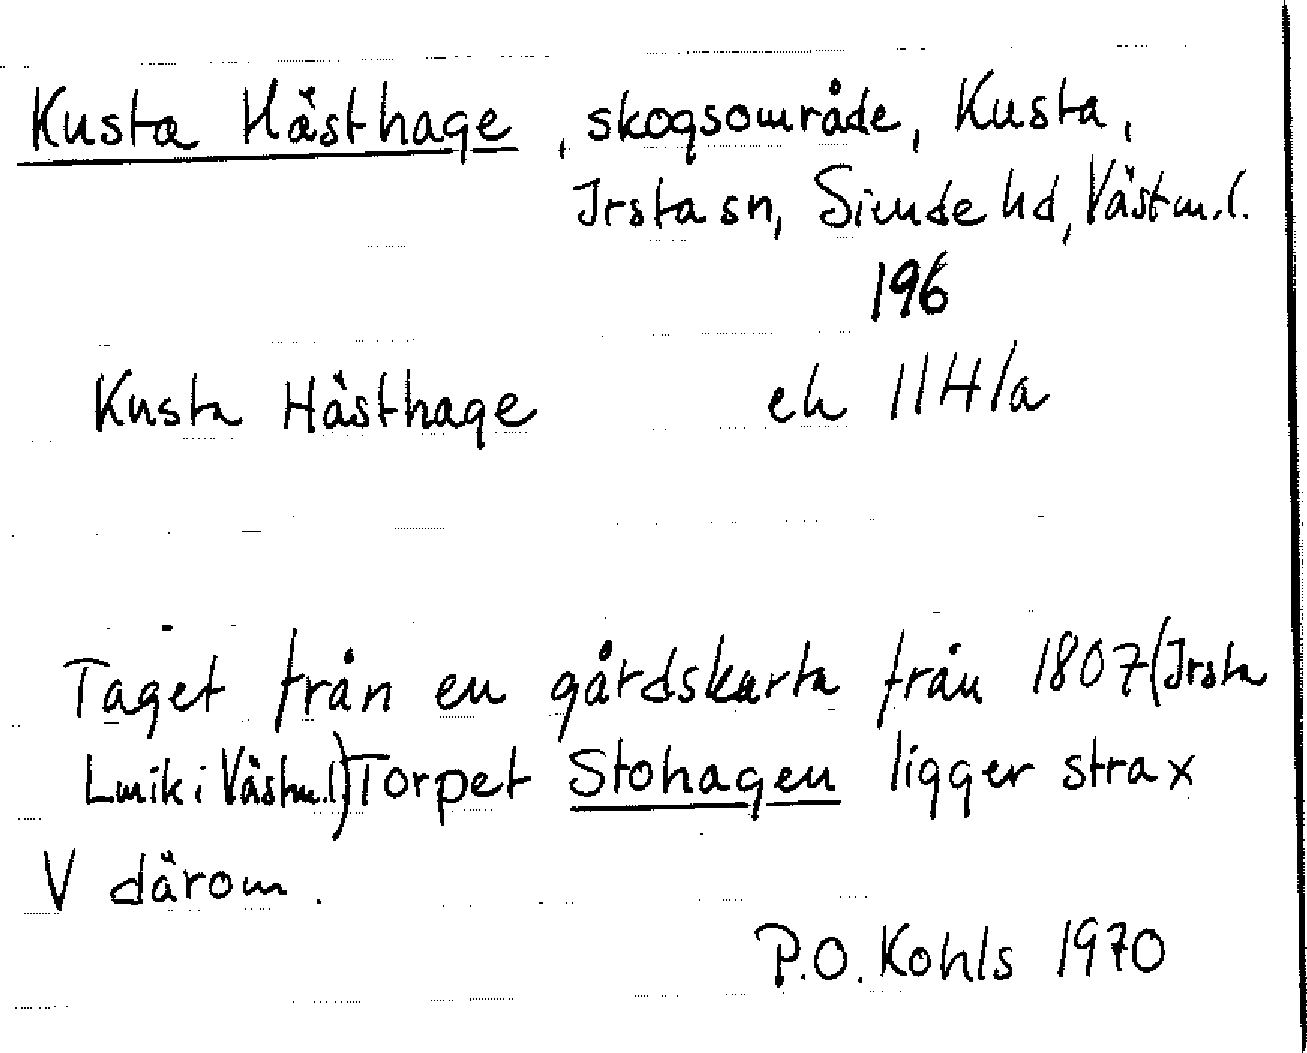 Kusta Hästhage, skogsområde, Kusta,
Irsta sn, Siende hd, Västm.l.
196
Kusta Hästhage ek 11H1a
Taget från en gårdskarta från 1807 (Irsta
Lmtk i Västm.l.) Torpet Stohagen ligger strax
V därom.
P.O. Kohls 1970